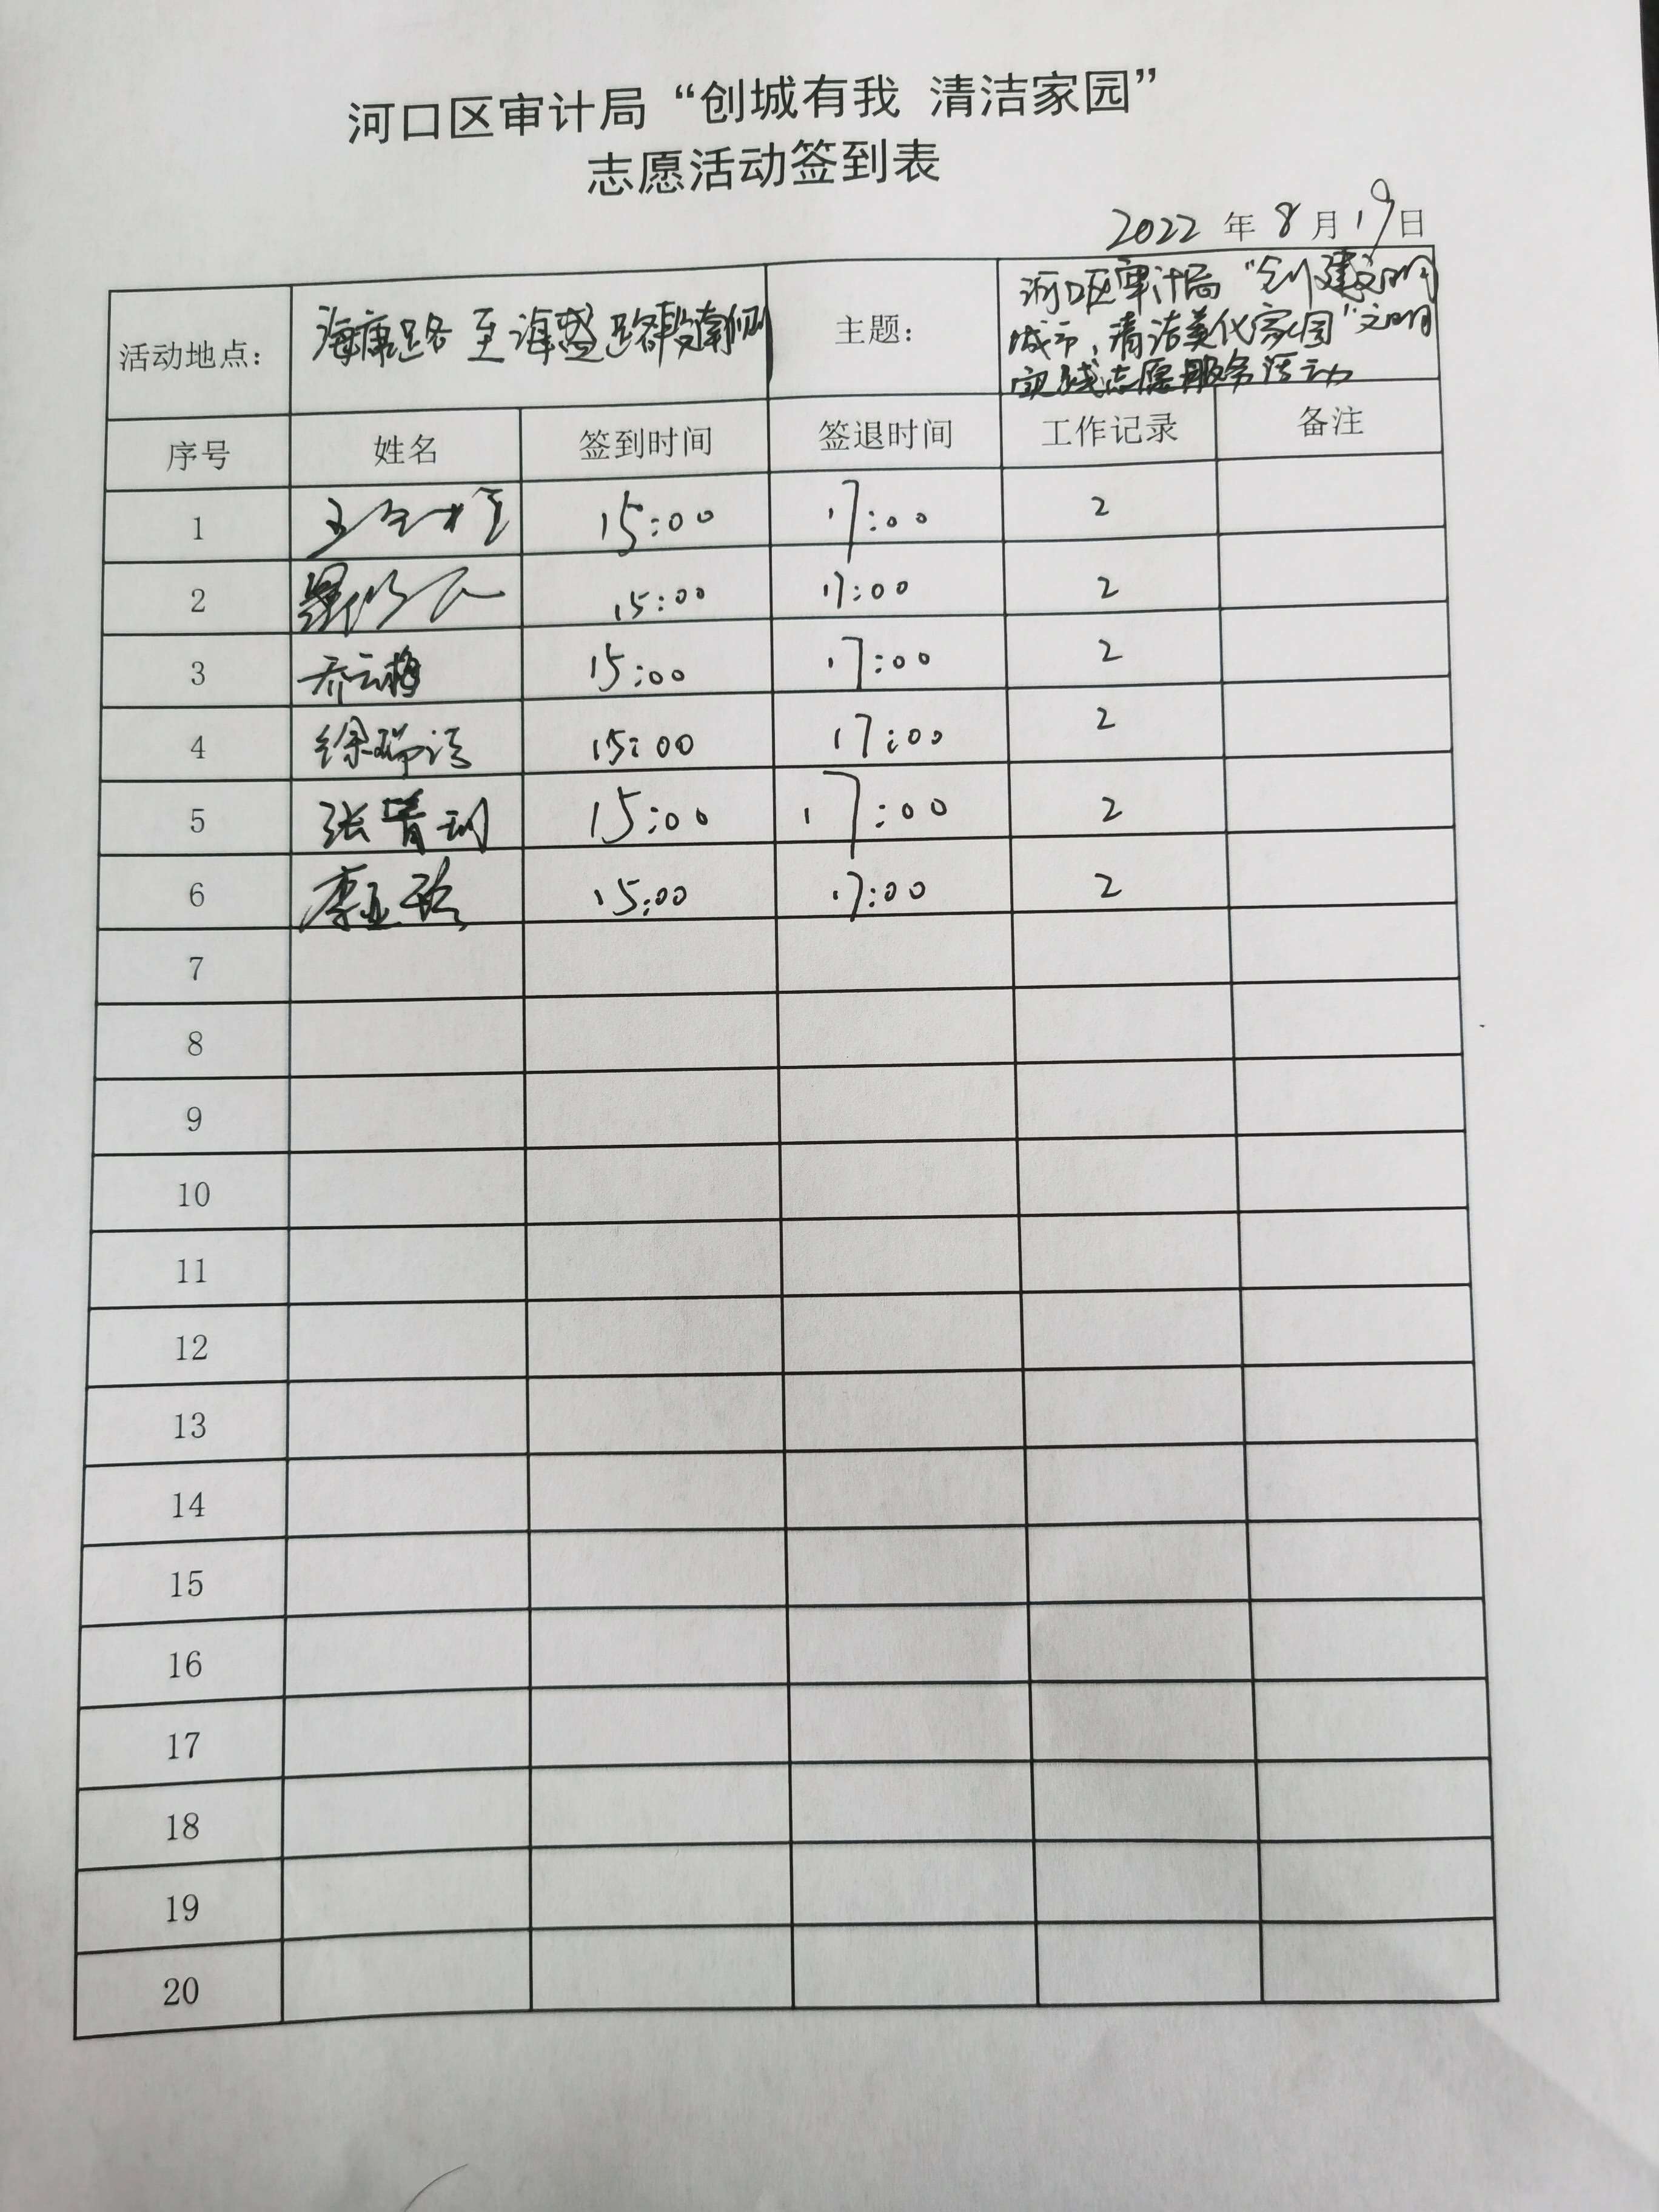 河口区审计局“创城有我 清洁家园”
志愿活动签到表
2022 年 8 月 19 日
活动地点： 海康路至海盛路段南侧 主题： 河口区审计局“创建文明
城市，清洁美化家园”文明
实践志愿服务活动
序号 姓名 签到时间 签退时间 工作记录 备注
1 15:00 17:00 2
2 15:00 17:00 2
3 乔云梅 15:00 17:00 2
4 徐瑞 15:00 17:00 2
5 张 15:00 17:00 2
6 李亚 15:00 17:00 2
7
8
9
10
11
12
13
14
15
16
17
18
19
20